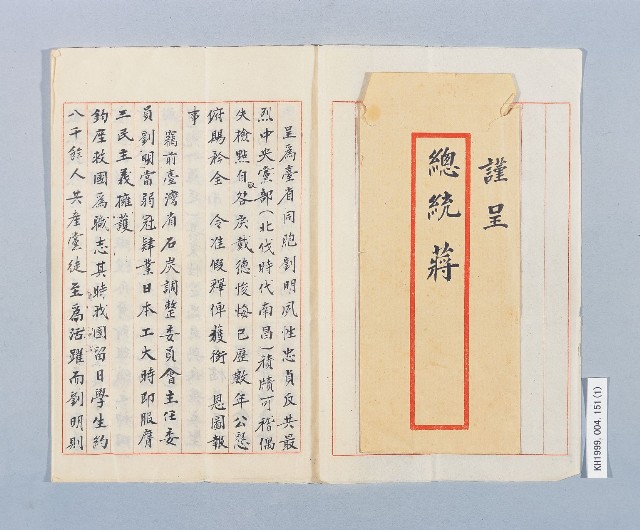 謹呈
總統 蔣
呈為臺省同胞劉明夙性忠貞反共最
烈中央黨部(北伐時代南昌)積牘可稽偶
失檢點自咎戾戴德悛悔已歷數年公懇
俯賜矜全 令准假釋俾獲銜 恩圖報
事
竊前臺灣省石炭調整委員會主任委
員劉明當弱冠肄業日本工大時即服膺
三民主義擁護
鈞座救國為職志其時我國留日學生約
八千餘人共產黨徒至為活躍而劉明則
KH1999.004.151(1)